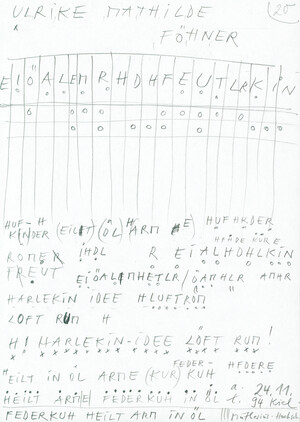 ULRIKE MATHILDE
20
FÖHNER
E I Ö A L E M R H D H F E U T L R K I N
HUF-H
KINDER (EILT) (ÖL) ARM E) HUFHRDER
HFÖDE KÜRE
ROMEN IHDL R EIALHDHLKIN
FREUT EIÖALIMHETLR/ÖAMHLR AMHR
HARLEKIN IDEE HLUFTROM
LÖFT RUM H
H! HARLEKIN-IDEE LÖFT RUM!
FEDER- HFDERE
HEILT IN ÖL ARME (KUR) KUH
HEILT ARME FEDERKUH IN ÖL 24.11.
94 Kiel
FEDERKUH HEILT ARM IN ÖL